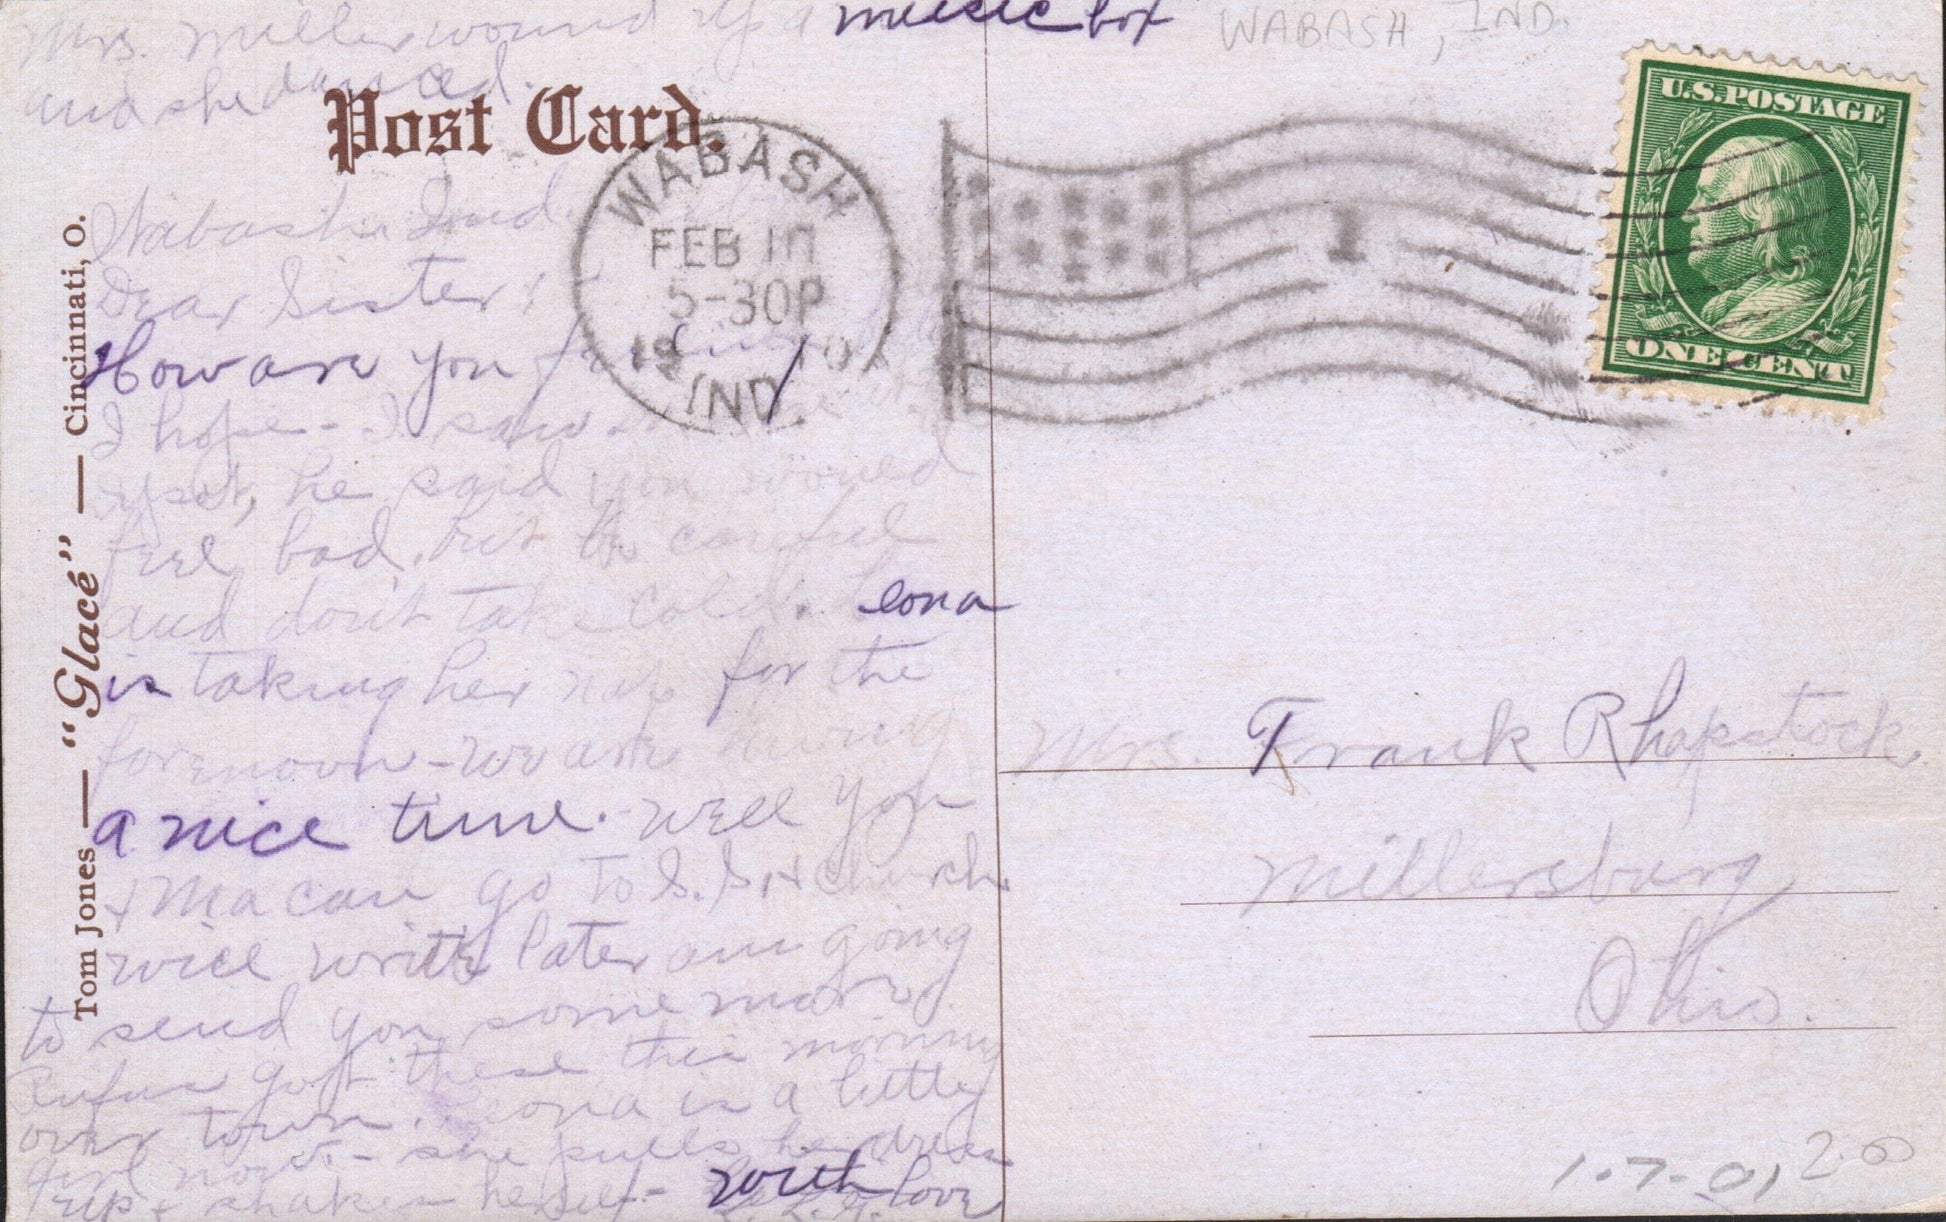 Mrs. Miller wound up a music box
and she danced.
WABASH, IND.
Post Card.
U.S.POSTAGE
ONE CENT
WABASH
FEB 10
5-30P
19
IND.
1
Tom Jones — "Glacé" — Cincinnati, O.
Wabash, Ind.
Dear Sister:
How are you
I hope - I saw
he said you
feel bad, but be careful
and don't take cold. Leona
is taking her nap for the
forenoon - we are having
a nice time. - Well you
& Ma can go to S. S. & church.
will write later am going
to send you some more
Rufus got these this morning
over town. Leona is a little
girl now - she pulls her dress
up & shakes herself - with love
Mrs. Frank Rhapstock,
Millersburg
Ohio.
1-7-01 2.00